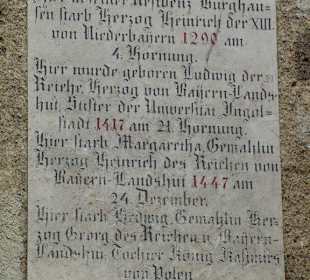 Hier in seiner Residenz Burghau-
sen starb Herzog Heinrich der XIII.
von Niederbayern 1290 am
4. Hornung.
Hier wurde geboren Ludwig der
Reiche, Herzog von Bayern-Lands-
hut, Stifter der Universität Ingol-
stadt 1417 am 21. Hornung.
Hier starb Margaretha, Gemahlin
Herzog Heinrich des Reichen von
Bayern-Landshut 1447 am
24. Dezember.
Hier starb Hedwig, Gemahlin Her-
zog Georg des Reichen v. Bayern-
Landshut, Tochter König Kasimirs
von Polen